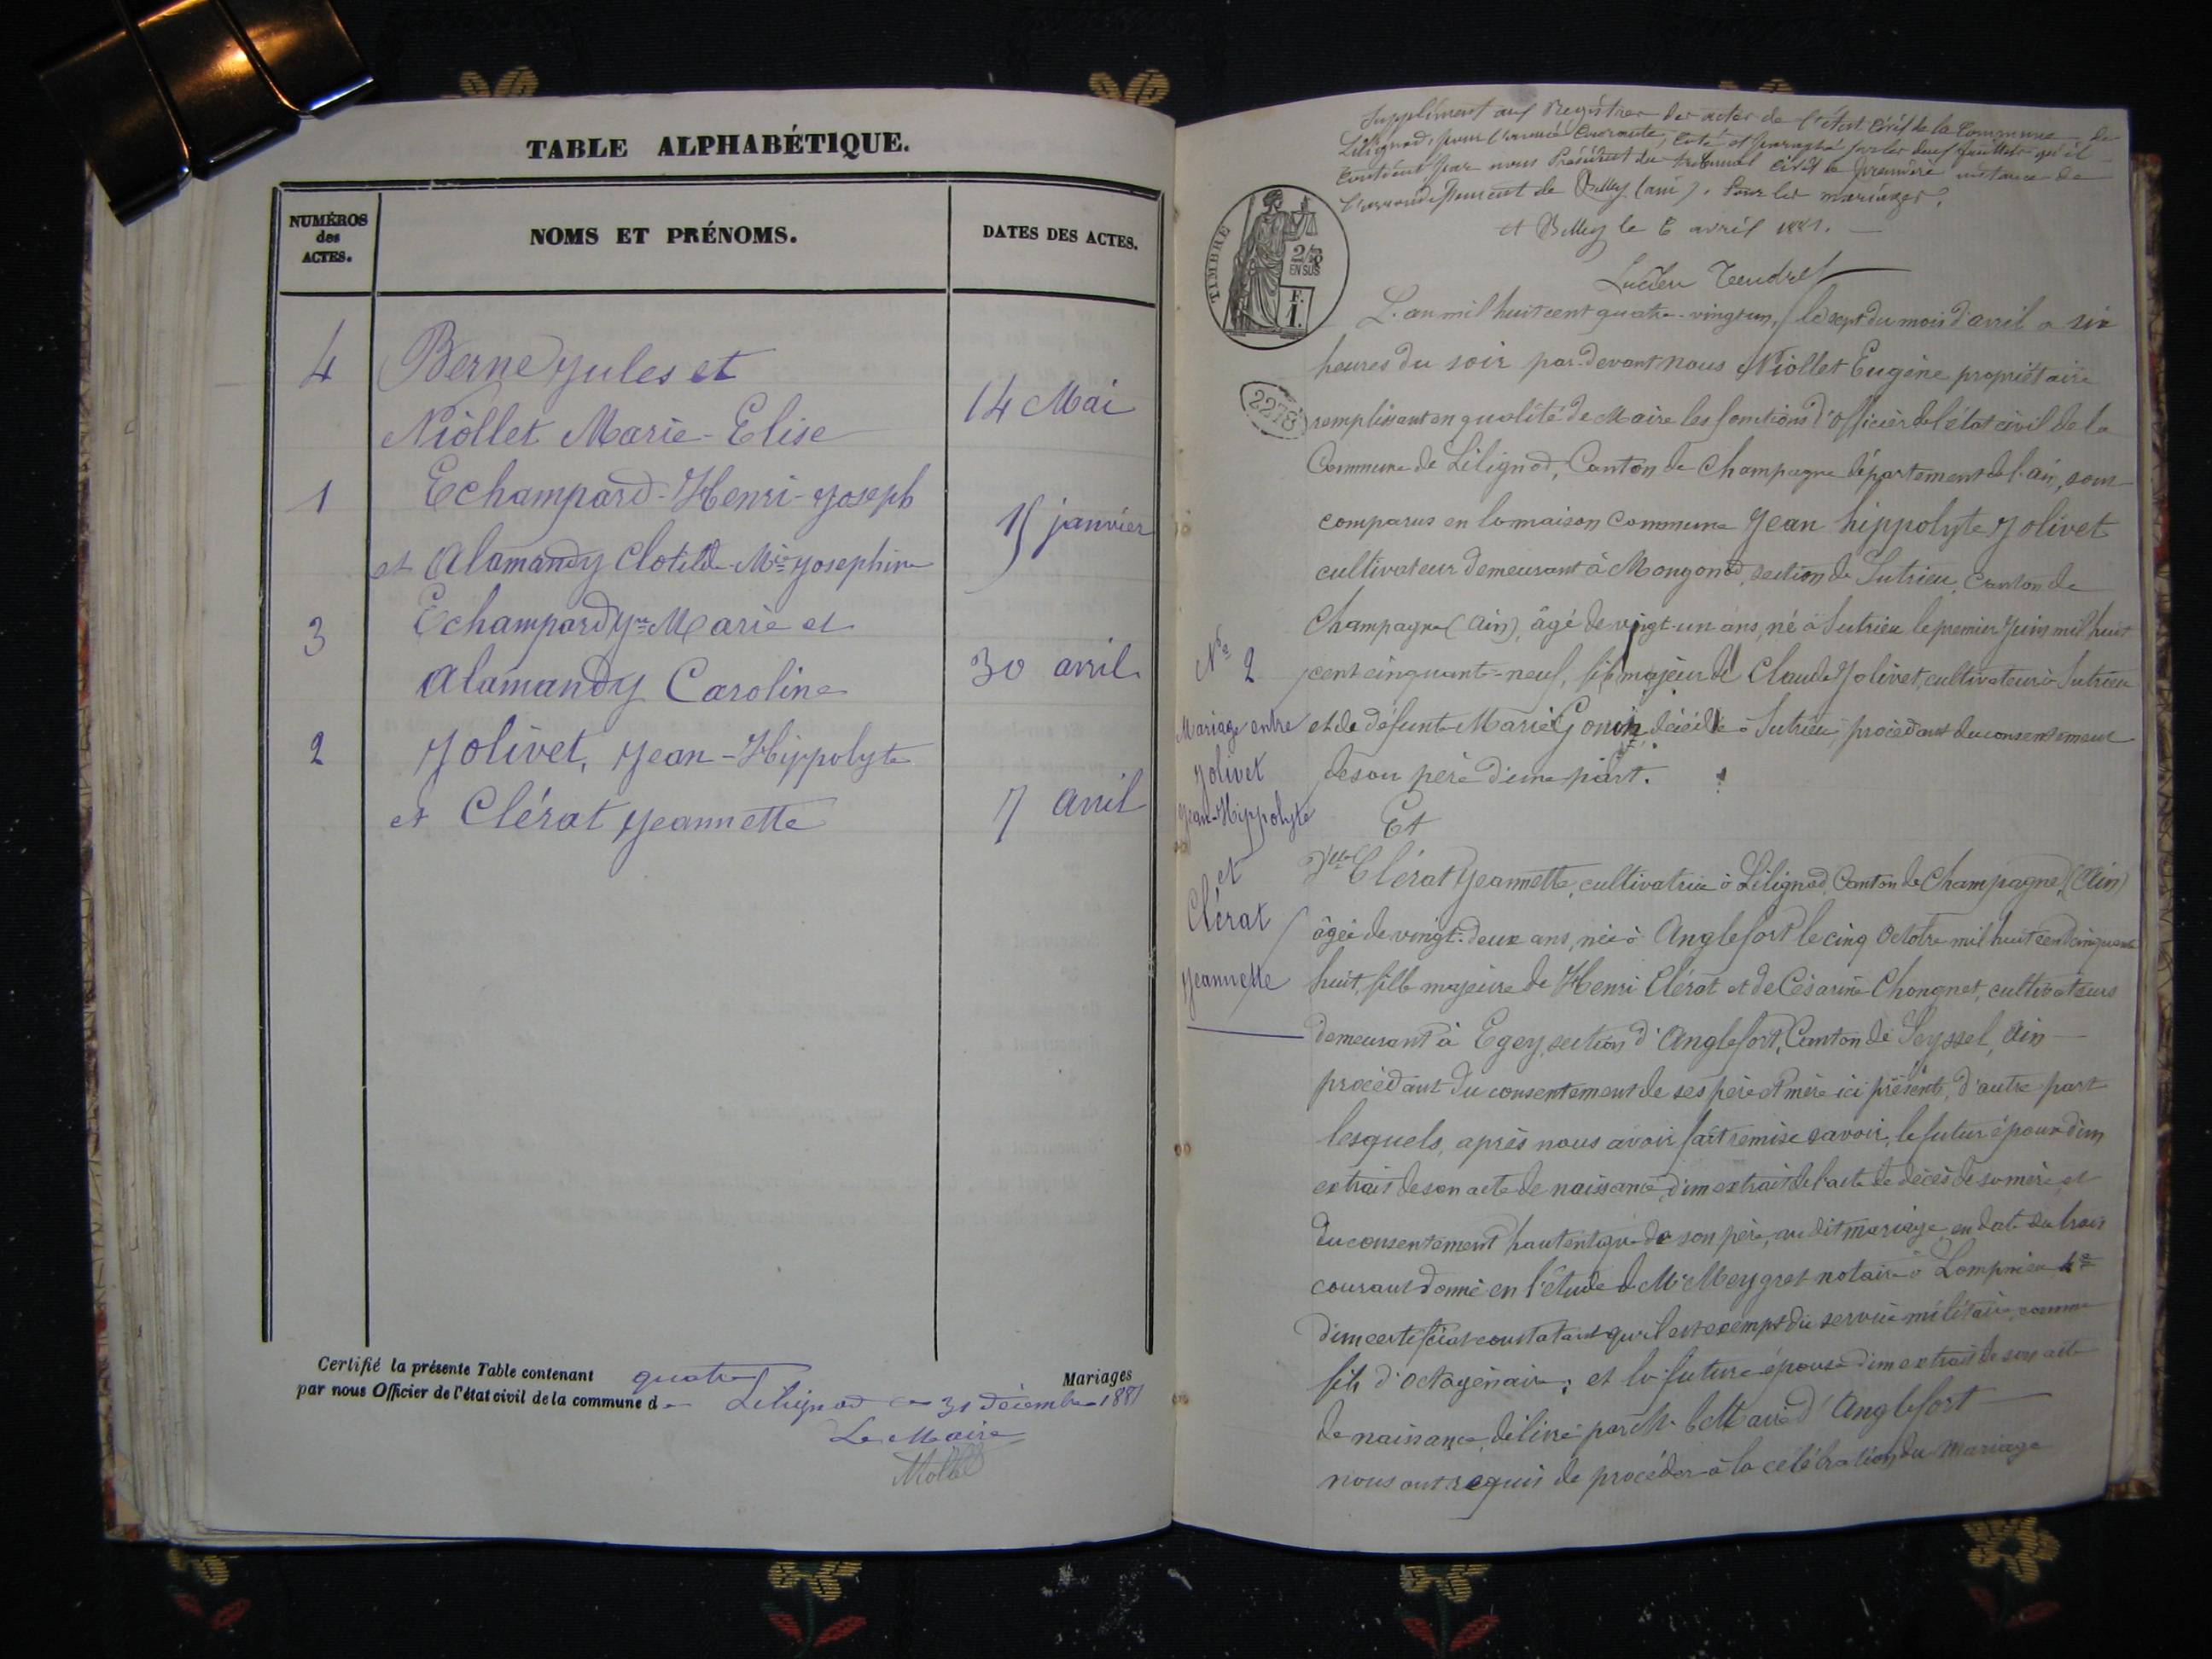 TABLE ALPHABÉTIQUE.
NUMÉROS
des
ACTES.
NOMS ET PRÉNOMS.
DATES DES ACTES.
4 Berne Jules et
Niollet Marie-Elise 14 Mai
1 Echampard-Henri-Joseph
et Alamandy Clotilde Mie Josephine 15 janvier
3 Echampard Jn Marie et
Alamandy Caroline 30 avril
2 Jolivet, Jean-Hippolyte
et Clérat Jeannette 7 avril
Certifié la présente Table contenant quatre Mariages
par nous Officier de l'état civil de la commune de Lilignod ce 31 décembre 1881
Le Maire
Supplément aux Registres des actes de l'état Civil de la Commune de
Lilignod, pour l'année courante, coté et paraphé sur les deux feuillets qu'il
contient, par nous Président du tribunal civil de première instance de
l'arrondissement de Belley (ain). Pour les mariages.
A Belley le 6 avril 1881.
Lucien Tendret
TIMBRE
2/10
EN SUS
F.
1.
2278
L'an mil huit cent quatre-vingt un, le sept du mois d'avril a six
heures du soir par devant nous Niollet Eugène propriétaire
remplissant en qualité de Maire les fonctions d'Officier de l'état civil de la
Commune de Lilignod, Canton de Champagne département de l'ain, sont
comparus en la maison commune Jean hippolyte Jolivet
cultivateur demeurant à Mongonod, section de Sutrieu, Canton de
Champagne (Ain), âgé de vingt-un ans, né à Sutrieu le premier Juin mil huit
cent cinquante-neuf, fils majeur de Claude Jolivet, cultivateur à Sutrieu
et de défunte Marie Gonin, décédée à Sutrieu, procédant du consentement
de son père d'une part.
Et
Dlle Clérat Jeannette, cultivatrice à Lilignod, Canton de Champagne, (Ain)
âgée de vingt-deux ans, née à Anglefort le cinq Octobre mil huit cent cinquante
huit, fille majeure de Henri Clérat et de Césarine Chongnet, cultivateurs
demeurant à Egey, section d'Anglefort, Canton de Seyssel, Ain
procédant du consentement de ses père et mère ici présents, d'autre part
lesquels, après nous avoir fait remise savoir, le futur époux d'un
extrait de son acte de naissance, d'un extrait de l'acte de décès de sa mère, et
du consentement hautentique de son père, au dit mariage, en date du trois
courant donné en l'étude de Me Meygret notaire à Lompnieu
d'un certificat constatant qu'il est exempt du service militaire, comme
fils d'octogénaire; et la future épouse d'un extrait de son acte
de naissance, délivré par Mr le Maire d'Anglefort
nous ont requis de procéder à la célébration du mariage
No 2
Mariage entre
Jolivet
Jean-Hippolyte
et
Clérat
Jeannette